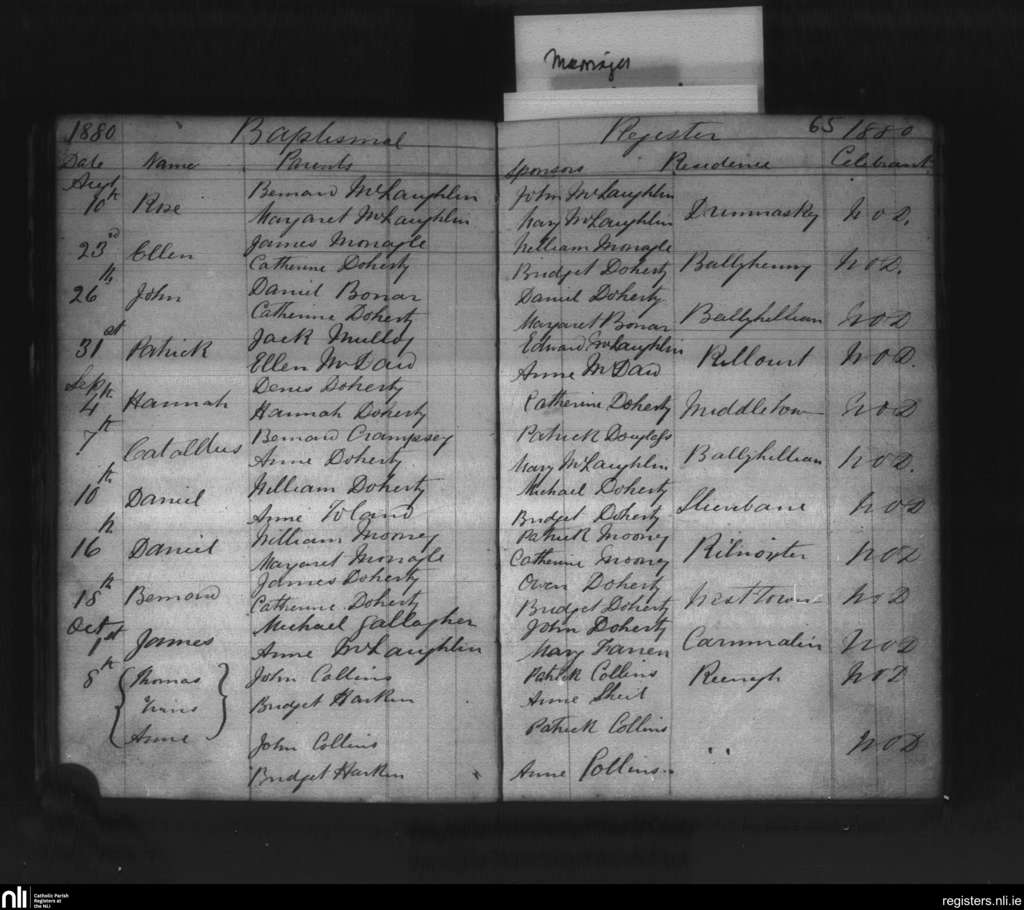 Marriages
1880 Baptismal Register 65 1880
Date Name Parents Sponsors Residence Celebrant
Augt
10th Rose Bernard McLaughlin John McLaughlin
Margaret McLaughlin Mary McLaughlin Drumnasky N O D.
23rd Ellen James Monagle William Monagle
Catherine Doherty Bridget Doherty Ballyhenny N O D.
26th John Daniel Bonar Daniel Doherty
Catherine Doherty Margaret Bonar Ballyhillian N O D
31st Patrick Jack Mulloy Edward McLaughlin
Ellen McDaid Anne McDaid Killourt N O D.
Sep Denis Doherty
4th Hannah Hannah Doherty Catherine Doherty Middletown N O D
7th Cataldus Bernard Crampsey Patrick Douglass
Anne Doherty Mary McLaughlin Ballyhillian N O D.
10th Daniel William Doherty Michael Doherty
Anne Toland Bridget Doherty Slievebane N O D
16th Daniel William Mooney Patrick Mooney
Margaret Monagle Catherine Mooney N O D
18th Bernard James Doherty Owen Doherty
Catherine Doherty Bridget Doherty Westtown N O D
Oct Michael Gallagher John Doherty
1st James Anne McLaughlin Mary Farren Carnmalin N O D
8th Thomas John Collins Patrick Collins N O D
Twins Bridget Harkin Anne Sheil
Anne John Collins Patrick Collins " N O D
Bridget Harkin Anne Collins
nli Catholic Parish
Registers at
the NLI
registers.nli.ie